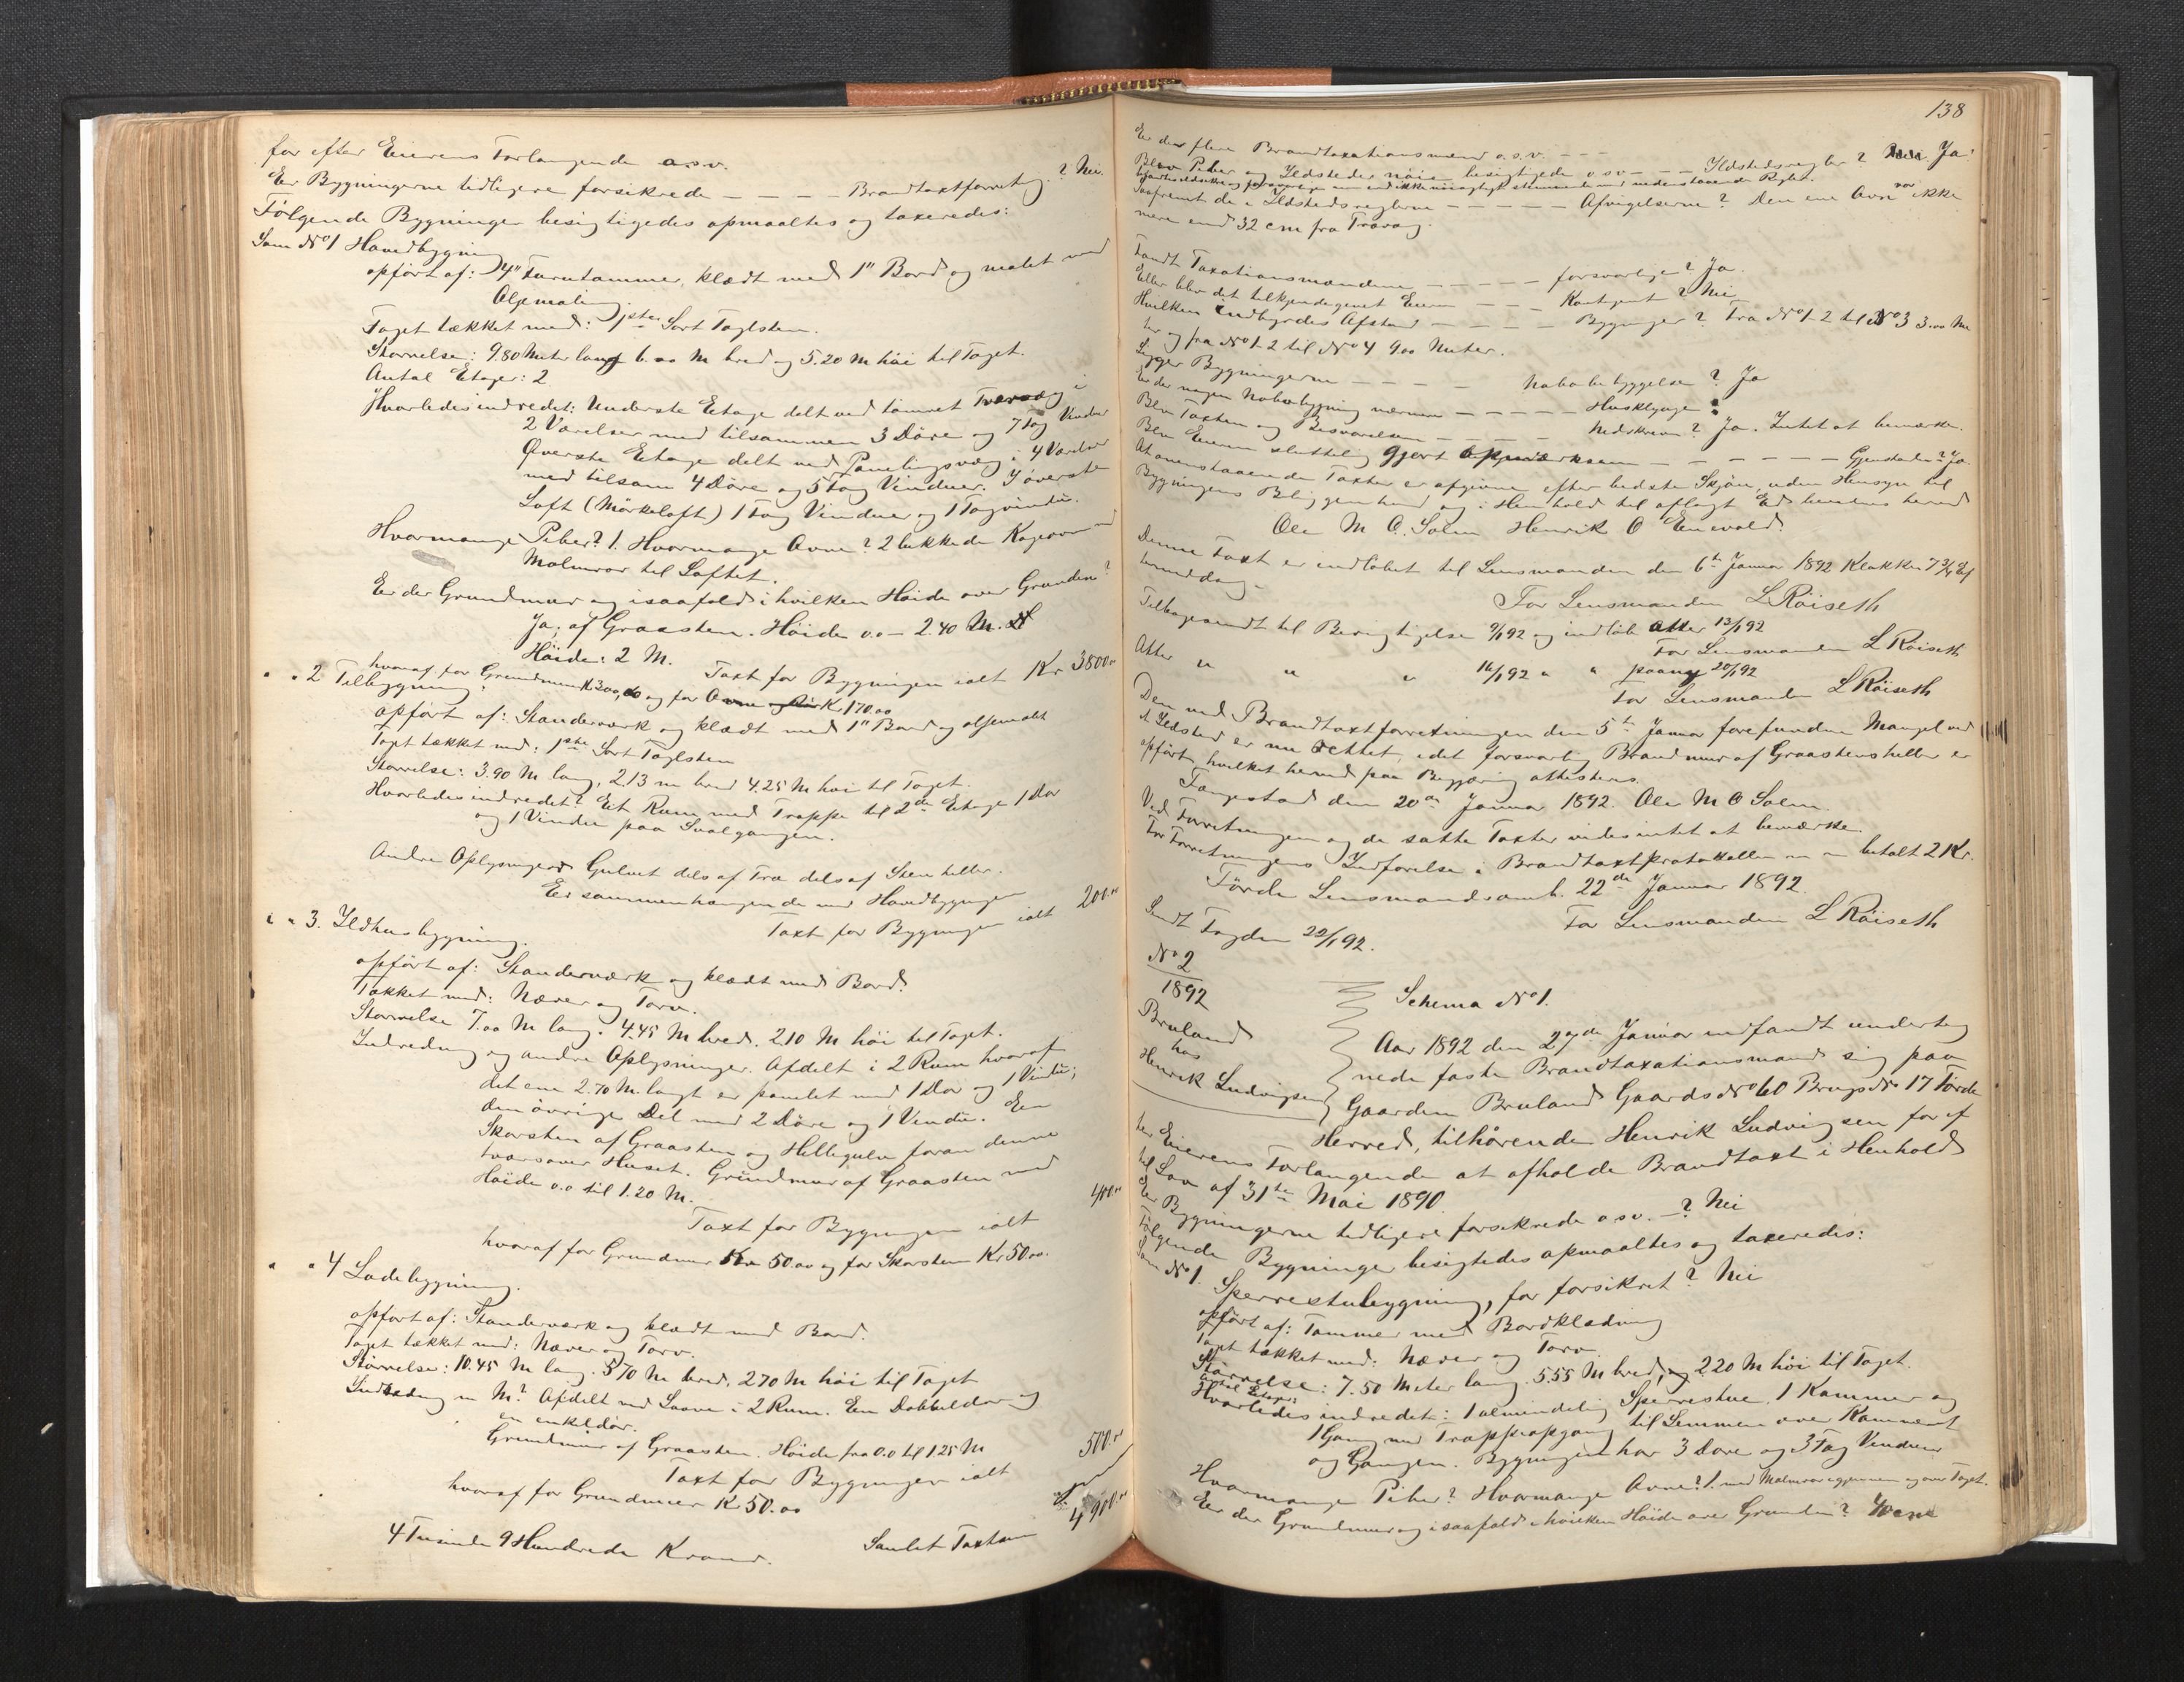 for efter Eierens Forlangende o.s.v.
Er Bygningerne tidligere forsikrede — — — — Brandtaxtforretng.? Nei.
Følgende Bygninger besigtigedes opmaaltes og taxeredes:
Som No 1 Hovedbygning
opført af: 4" Furutømmer, klædt med 1" Bord og malet med
Oljemaling.
Taget tækket med: 1ste Sort Taglsten.
Størrelse: 9.80 Meter lang 6.00 M bred og 5.20 M høi til Taget.
Antal Etager: 2
Hvorledes indredet: Underste Etage delt ved tømret Tværvæg i
2 Værelser med tilsammen 3 Døre og 7 fag Vinduer
Øverste Etage delt ved Panelingsvæg i 4 Værelser
med tilsam 4 Døre og 5 fag Vinduer. I øverste
Loft (Mørkeloft) 1 fag Vinduer og 1 Tagvindu.
Hvormange Piber? 1. Hvormange Ovne? 2 lukkede Kogeovne med
Malmrør til Loftet.
Er der Grundmur og isaafald i hvilken Høide over Grunden?
Ja, af Graasten. Høide 0.0 – 2.40 M.
Høide: 2 M.
Taxt for Bygningen ialt Kr 3800.00
hvoraf for Grundmur K 300,00 og for Ovne K 170.00
" " 2 Tilbygning.
opført af: Standerværk og klædt med 1" Bord og oljemalet
Taget tækket med: 1ste Sort Taglsten
Størrelse: 3.90 M lang, 2.13 m bred 4.25 M høi til Taget.
Hvorledes indredet? Et Rum med Trappe til 2den Etage 1 Dør
og 1 Vindu paa Svalgangen.
Andre Oplysninger: Gulvet dels af Træ dels af Stenheller.
Er sammenhængende med Hovedbygningen
Taxt for Bygningen ialt 200.00
" " 3. Ildhusbygning.
opført af: Standerværk og klædt med Bord.
Tækket med: Næver og Torv.
Størrelse 7.00 M lang. 4.45 M bred. 2.10 M høi til Taget.
Indredng og andre Oplysninger. Afdelt i 2 Rum hvoraf
det ene 2.70 M. langt er panelet med 1 Dør og 1 Vindu;
den øvrige Del med 2 Døre og 1 Vindu. En
Skorsten af Graasten og Hellegulv foran denne
tværsover Huset. Grundmur af Graasten med
Høide 0.0 til 1.20 M.
Taxt for Bygningen ialt 400.00
hvoraf for Grundmur Kr 50.00 og for Skorsten Kr 50.00.
" " 4 Ladebygning.
opført af: Standerværk og klædt med Bord.
Taget tækket med: Næver og Torv.
Størrelse: 10.45 M lang. 5.70 M bred, 2.70 M høi til Taget
Indredng m M? Afdelt ved Laave i 2 Rum. En Dobbeldør og
en enkeldør.
Grundmur af Graasten. Høide fra 0.0 til 1.25 M
Taxt for Bygningen ialt 500.00
hvoraf for Grundmur K 50.00
Samlet Taxtsum 4900.00
4 Tusinde 9 Hundrede Kroner.
138
Er der flere Brandtaxationsmænd o.s.v. — — —
Blev Piber og Ildsteder nøie besigtigede o.s.v — — — Ildstedsregler? Ja.
Saafremt de i Ildstedsreglerne — — — — — Afvigelserne? Den ene Ovn var ikke
mere end 32 cm fra Trævæg.
Fandt Taxationsmændene — — — — — forsvarlige? Ja.
Eller blev det tilkjendegivet Eieren — — Kontigent? Nei
Hvilken indbyrdes Afstand — — — — Bygninger? Fra No 1-2 til No 3 3.00 Me
ter og fra No 1-2 til No 4 9.00 Meter.
Ligger Bygningerne — — — — Nabobebyggelsen? Ja
Er der nogen Nabobygning nærmere — — — — — Husklynge
Blev Taxten og Besvarelsen — — — — Nedskreven? Ja. Intet at bemærke.
Blev Eieren sluttelig gjort opmærksom — — — — — Gjenstande? Ja.
At ovenstaaende Taxter er afgivne efter bedste Skjøn, uden Hensyn til
Bygningens Beliggenhed og i Henhold til aflagt Ed bevidnes herved
Ole M O. Solem Henrik O Enevold.
Denne Taxt er indløbet til Lensmanden den 6te Januar 1892 Klokken 7 3/4 Ef
termiddag.
For Lensmanden L Røiseth
Tilbagesendt til Berigtigelse 9/1 92 og indløb atter 13/1 92
For Lensmanden L Røiseth
Atter " " " 16/1 92 " " paany 20/1 92
For Lensmanden L Røiseth
Den ved Brandtaxtforretningen den 5te Januar forefundne Mangel ved
et Ildsted er nu rettet, idet forsvarlig Brandmur af Graastensheller er
opført, hvilket herved paa Begjæring attesteres.
Fangestad den 20de Januar 1892. Ole M O Solem.
Ved Forretningen og de satte Taxter vides intet at bemærke.
For Forretningens Indførelse i Brandtaxtprotokollen er betalt 2 Kr.
Førde Lensmandsomb. 22de Januar 1892.
For Lensmanden L Røiseth
Sendt Fogden 22/1 92.
No 2
1892
Bruland
hos
Henrik Ludvigsen
Schema No 1.
Aar 1892 den 27de Januar indfandt underteg
nede faste Brandtaxationsmænd sig paa
Gaarden Bruland Gaards No 60 Brugs No 17 Førde
Herred, tilhørende Henrik Ludvigsen for ef
ter Eierens Forlangende at afholde Brandtaxt i Henhold
til Lov af 31te Mai 1890.
Er Bygningerne tidligere forsikrede o.s.v. —? Nei
Følgende Bygninger besigtedes opmaaltes og taxeredes:
Som No 1. Sperrestubygning, før forsikret? Nei
opført af: Tømmer med Bordklædning
Taget tækket med: Næver og Torv.
Størrelse: 7.50 Meter lang. 5.55 M bred, og 2.20 M høi til Taget.
Antal Etager:
Hvorledes indredet: 1 almindelig Sperrestue, 1 Kammer og
1 Gang med Trappeopgang til Lemmen over Kammeret
og Gangen. Bygningen har 3 Døre og 3 Fag Vinduer
Hvormange Piber? Hvormange Ovne? 1. med Malmrør igjennem og over Taget.
Er der Grundmur og isaafald i hvilken Høide over Grunden? 40 cm